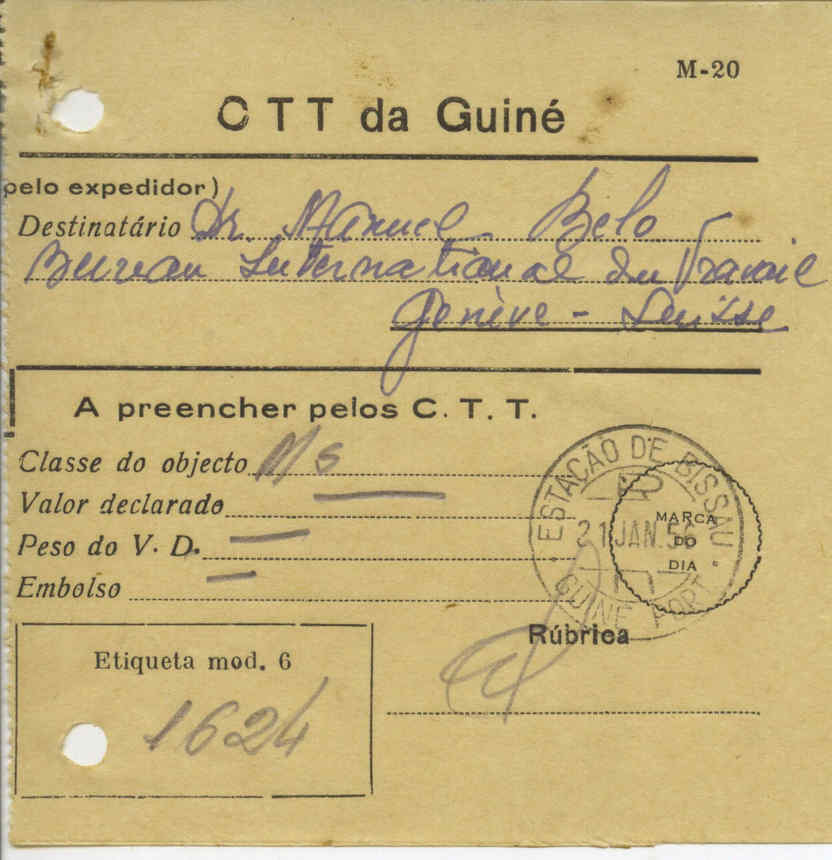 M-20
CTT da Guiné
pelo expedidor)
Destinatário Dr. Manuel Belo
Bureau International du Travail
Genève - Suisse
A preencher pelos C. T. T.
Classe do objecto
Valor declarado
Peso do V. D.
Embolso
ESTAÇÃO DE BISSAU
21 JAN.
GUINÉ PORT.
MARCA
DO
DIA
Rúbrica
Etiqueta mod. 6
1624